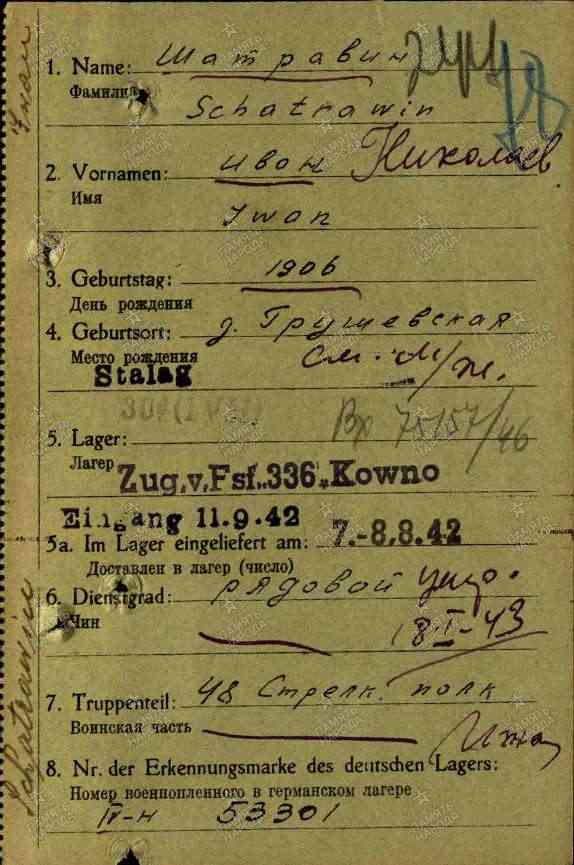 1. Name: Шатравин
Фамилия
Schatrawin
2. Vornamen: Иван Николаев
Имя
Iwan
3. Geburtstag: 1906
День рождения
4. Geburtsort: д. Грушевская
Место рождения
Stalag
5. Lager: Вр 75157/46
Лагер
Zug.v.Fsf.336 Kowno
Eingang 11.9.42
5a. Im Lager eingeliefert am: 7.-8.8.42
Доставлен в лагер (число)
6. Dienstgrad: рядовой
Чин
18 I-43
7. Truppenteil: 48 Стрелк. полк
Воинская часть
8. Nr. der Erkennungsmarke des deutschen Lagers:
Номер военнопленного в германском лагере
53301
Schatrawin